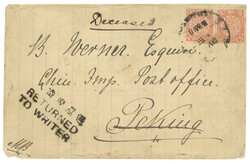 Deceased
B. Werner. Esquire.
Chin. Imp. Post office.
Peking
RETURNED
TO WRITER